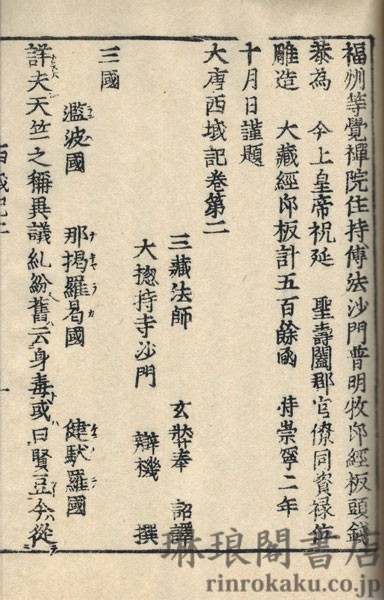 福州等覺禪院住持傳法沙門普明收印經板頭錢
恭為 今上皇帝祝延 聖壽闔郡官僚同資祿位
雕造 大藏經印板計五百餘函 時崇寧二年
十月日謹題
大唐西域記卷第二
三藏法師 玄奘奉 詔譯
大捴持寺沙門 辯機 撰
三國
濫波國 那揭羅曷國 健馱羅國
詳夫天竺之稱異議糺紛舊云身毒或曰賢豆今從
琳琅閣書店
rinrokaku.co.jp